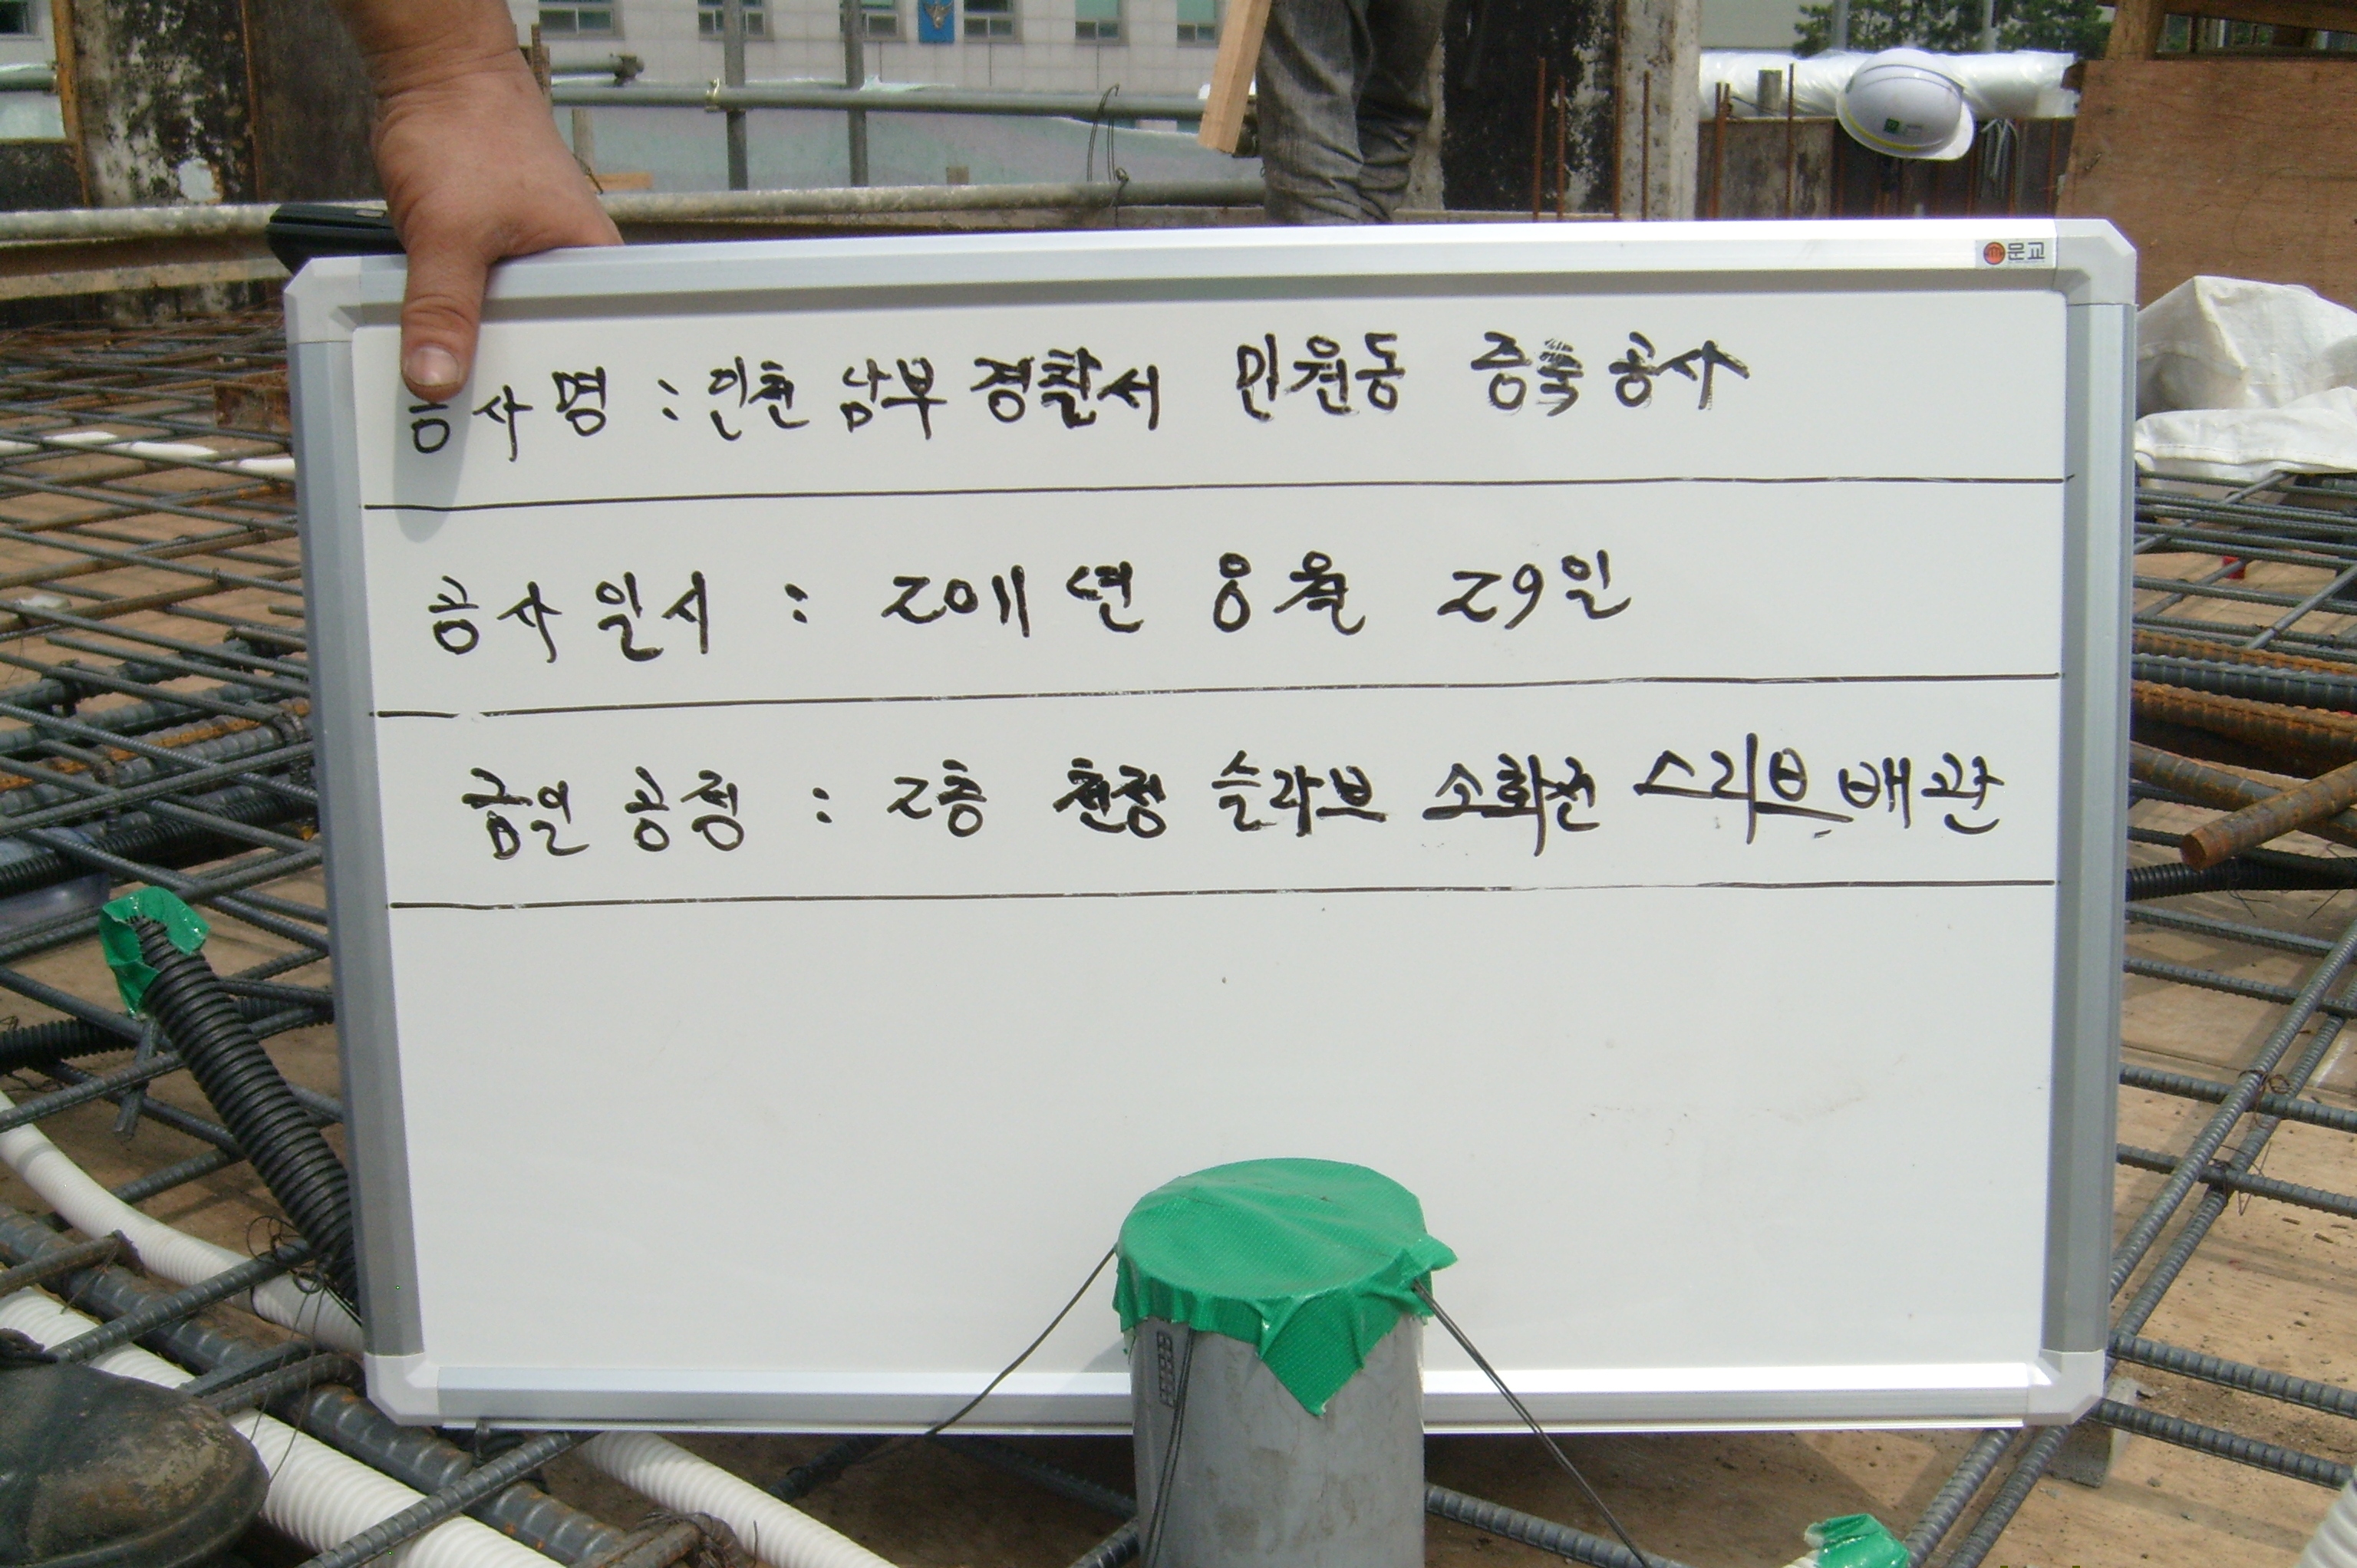 문교
공사명 : 인천 남부 경찰서 민원동 증축공사
공사일시 : 2011년 8월 29일
금일 공정 : 2층 천정 슬라브 소화전 스리브 배관